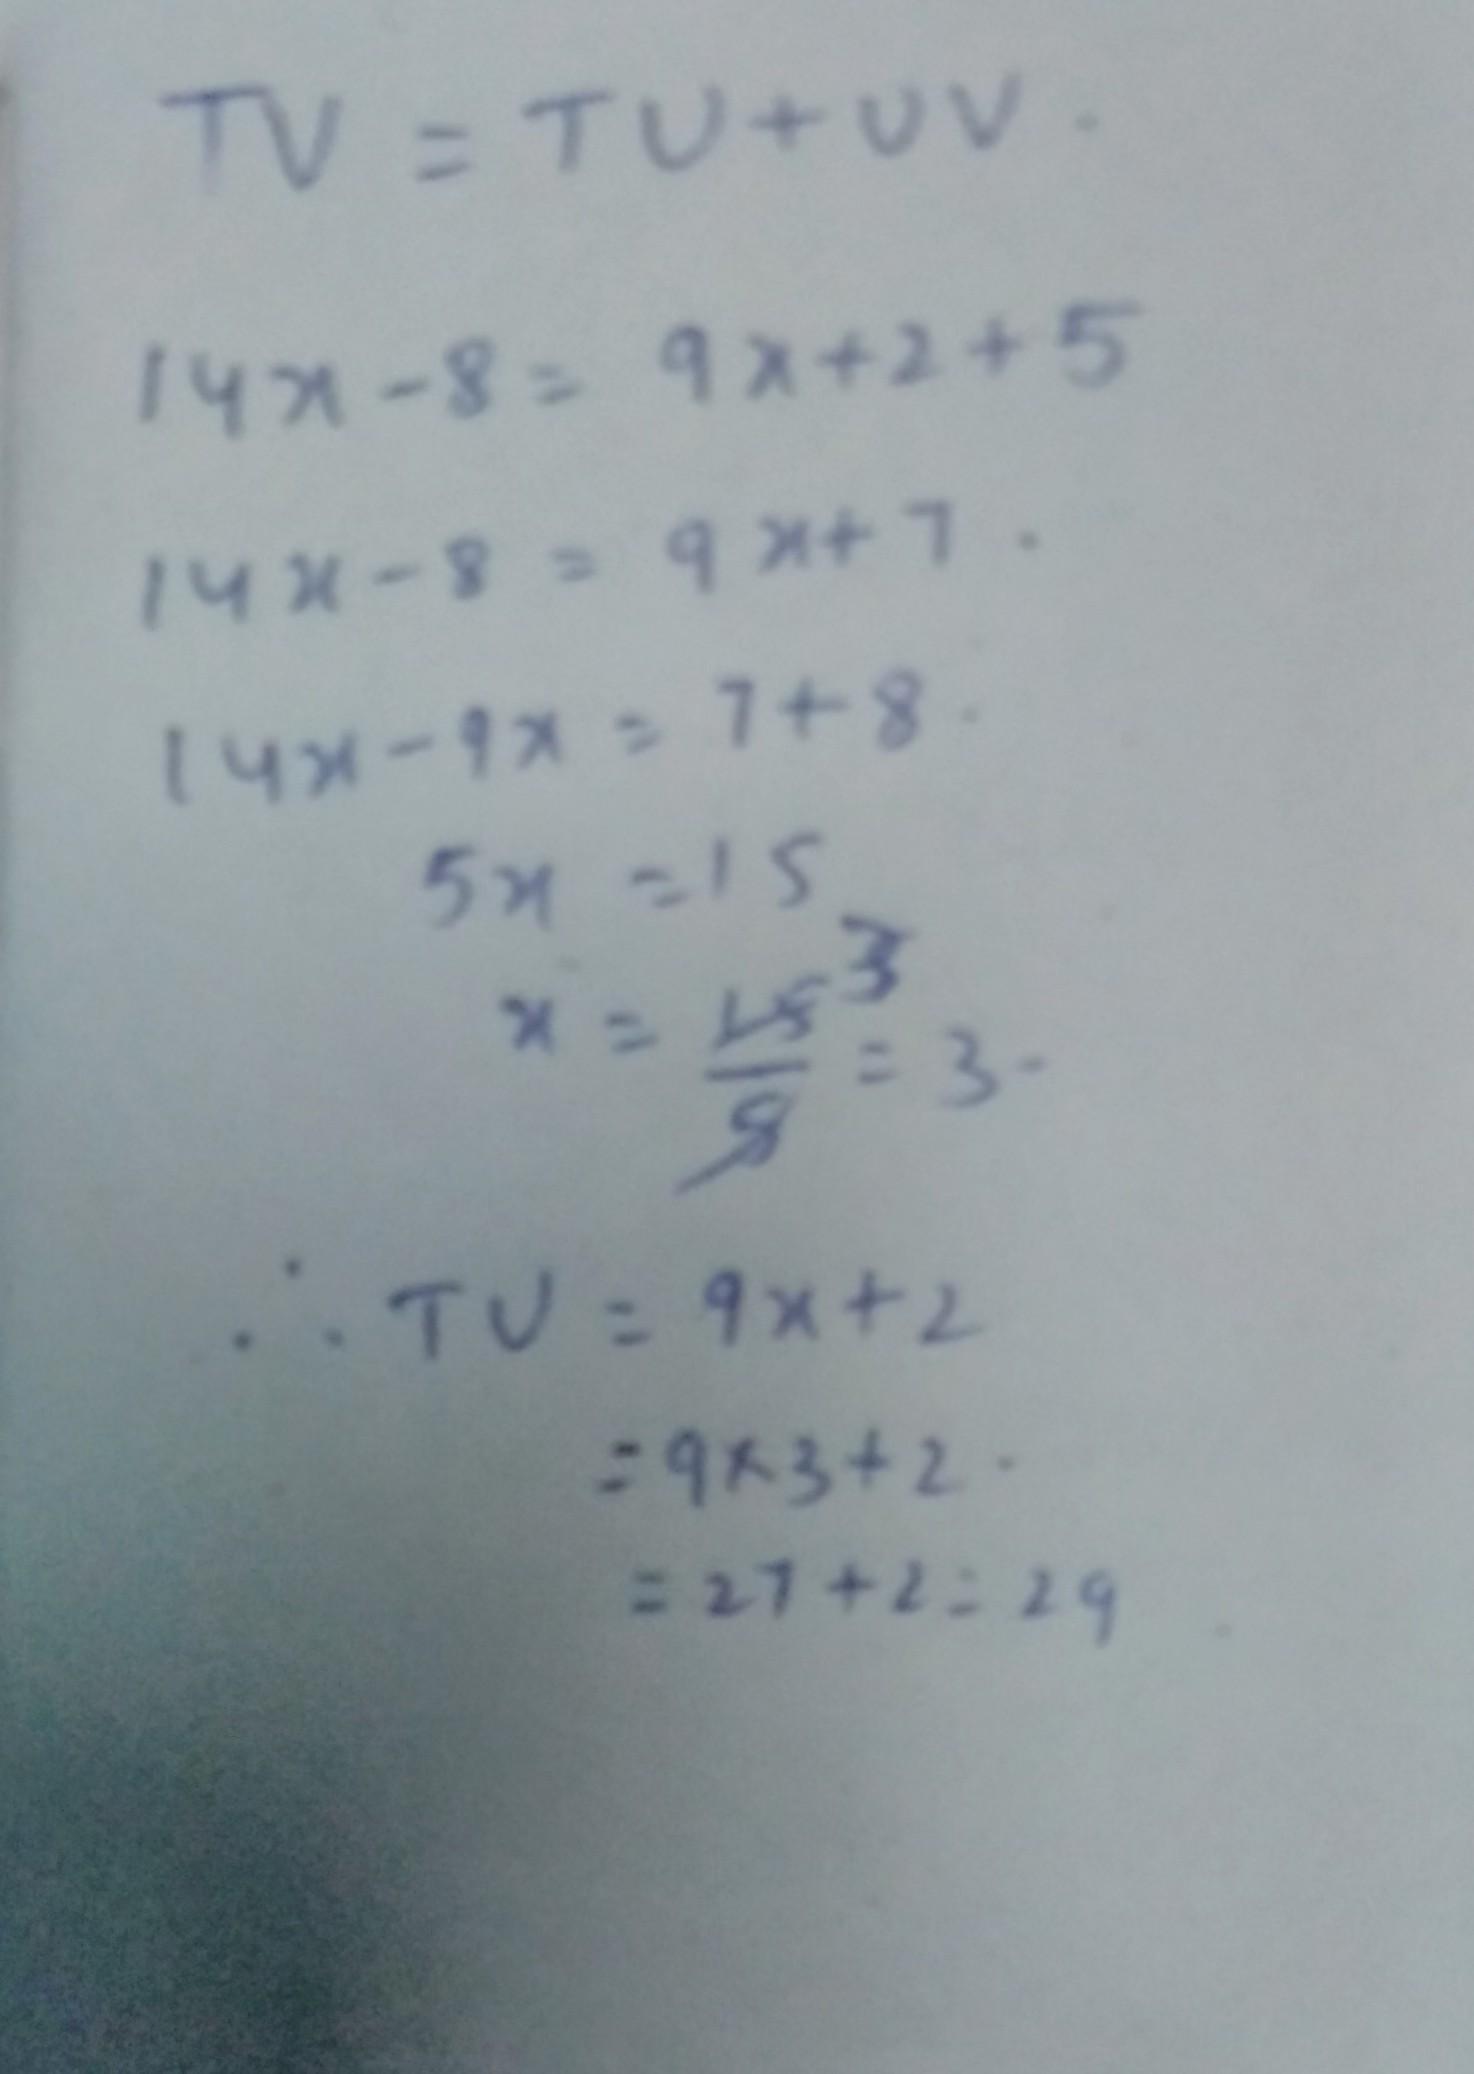 TV = TU + UV.
14x - 8 = 9x + 2 + 5
14x - 8 = 9x + 7.
14x - 9x = 7 + 8.
5x = 15
x = 15/5 3 = 3.
∴ TU = 9x + 2
= 9 × 3 + 2.
= 27 + 2 = 29